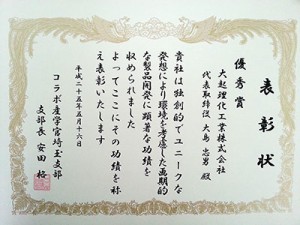 表彰状
優秀賞
大起理化工業株式会社
代表取締役 大島忠男 殿
貴社は独創的でユニークな
発想により環境を考慮した画期的
な製品開発に顕著な功績を
収められました
よってここにその功績を称
え表彰いたします
平成二十五年五月十六日
コラボ産学官埼玉支部
支部長 安田 格